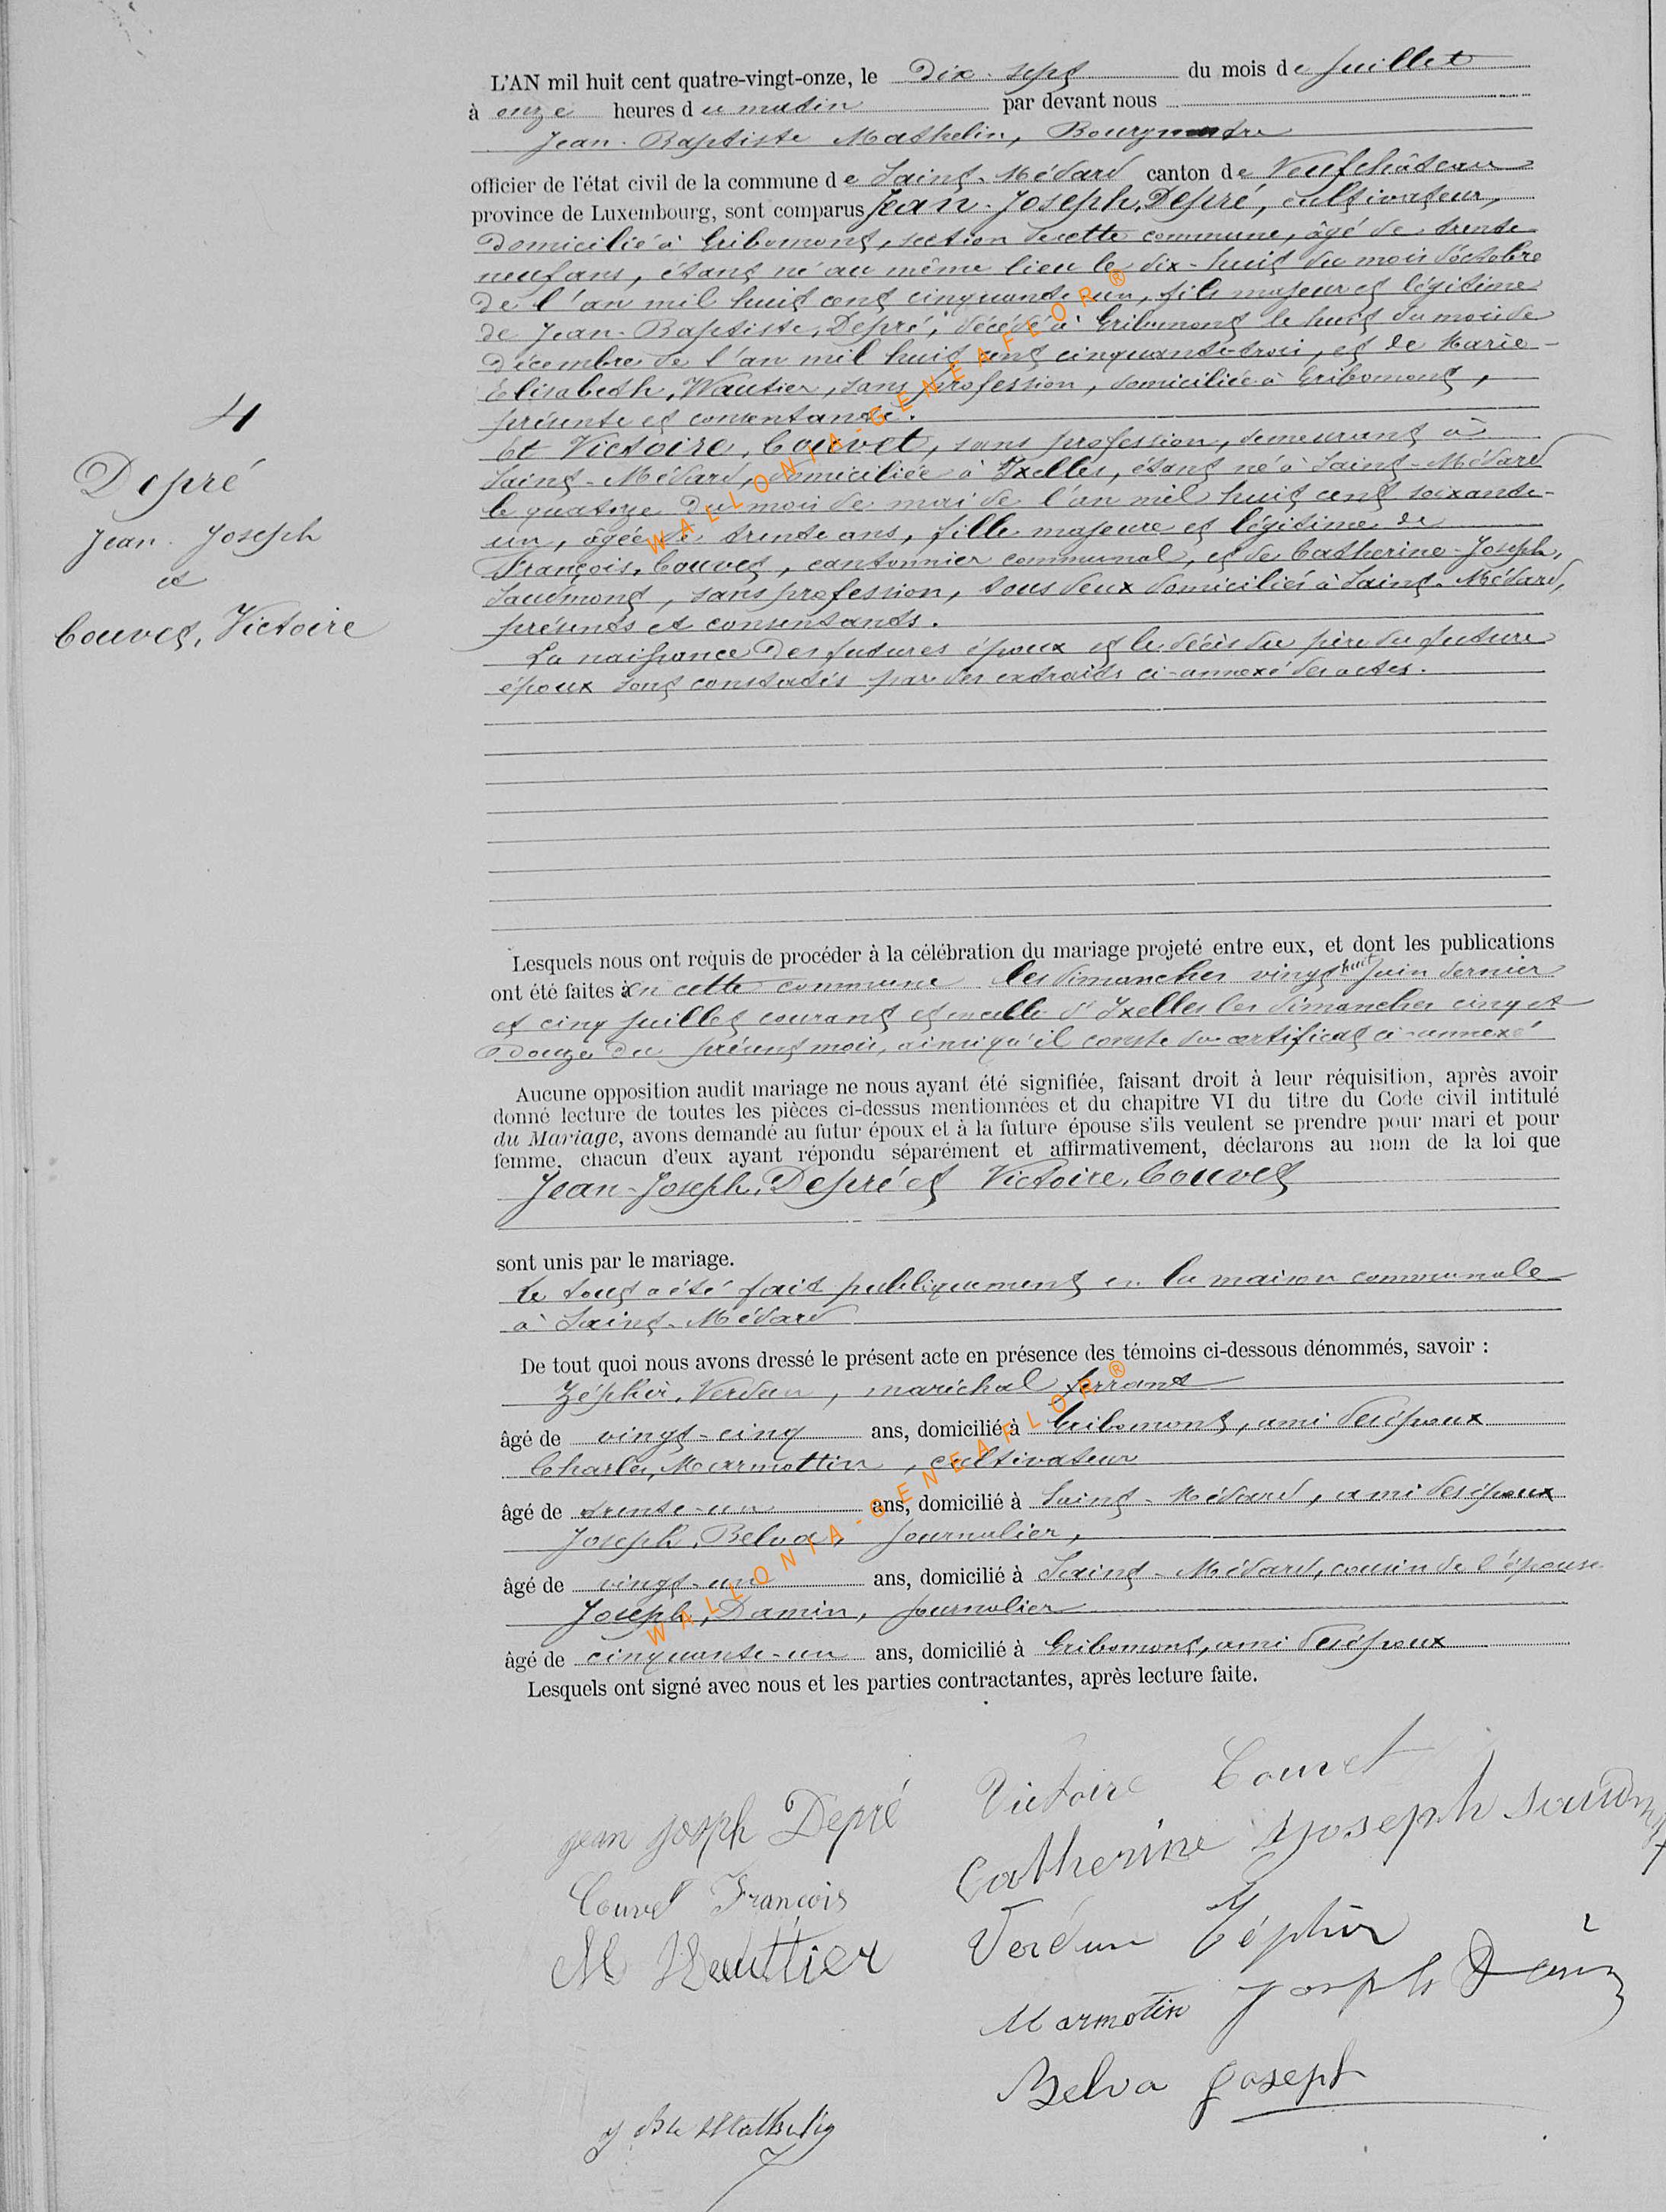 L'AN mil huit cent quatre-vingt-onze, le Dix-sept du mois de Juillet
à onze heures du matin par devant nous
Jean-Baptiste Mathelin, Bourgmestre
officier de l'état civil de la commune de Saint-Médard canton de Neufchâteau
province de Luxembourg, sont comparus Jean-Joseph, Depré, cultivateur,
domicilié à Gribomont, section de cette commune, âgé de trente
neuf ans, étant né au même lieu le dix-huit du mois d'octobre
de l'an mil huit cent cinquante un, fils majeur et légitime
de Jean-Baptiste, Depré, décédé à Gribomont le huit du mois de
décembre de l'an mil huit cent cinquante-trois, et de Marie-
Elisabeth, Wautier, sans profession, domiciliée à Gribomont,
présente et consentante.
Et Victoire, Couvet, sans profession, demeurant à
Saint-Médard, domiciliée à Ixelles, étant né à Saint-Médard
le quatorze du mois de mai de l'an mil huit cent soixante-
un, âgée de trente ans, fille majeure et légitime de
François, Couvet, cantonnier communal, et de Catherine-Joseph,
Saudmont, sans profession, tous deux domiciliés à Saint-Médard,
présents et consentants.
La naissance des futures époux et le décès du père du future
époux sont constatés par des extraits ci-annexé des actes.
4
Depré
Jean-Joseph
et
Couvet, Victoire
Lesquels nous ont requis de procéder à la célébration du mariage projeté entre eux, et dont les publications
ont été faites en cette commune les dimanches vingt huit juin dernier
et cinq juillet courant et en celle d'Ixelles les dimanches cinq et
douze du présent mois, ainsi qu'il conste du certificat ci-annexé
Aucune opposition audit mariage ne nous ayant été signifiée, faisant droit à leur réquisition, après avoir
donné lecture de toutes les pièces ci-dessus mentionnées et du chapitre VI du titre du Code civil intitulé
du Mariage, avons demandé au futur époux et à la future épouse s'ils veulent se prendre pour mari et pour
femme, chacun d'eux ayant répondu séparément et affirmativement, déclarons au nom de la loi que
Jean-Joseph, Depré et Victoire, Couvet
sont unis par le mariage.
Le tout a été fait publiquement en la maison communale
à Saint-Médard
De tout quoi nous avons dressé le présent acte en présence des témoins ci-dessous dénommés, savoir :
Zéphir, Verdun, maréchal ferrant
âgé de vingt-cinq ans, domicilié à Gribomont, ami des époux
Charles, Marmottin, cultivateur
âgé de trente-un ans, domicilié à Saint-Médard, ami des époux
Joseph, Belva, journalier,
âgé de vingt-un ans, domicilié à Saint-Médard, cousin de l'épouse
Joseph, Damin, journalier
âgé de cinquante-un ans, domicilié à Gribomont, ami des époux
Lesquels ont signé avec nous et les parties contractantes, après lecture faite.
jean joseph Depré
Victoire Couvet
Catherine Joseph Saudmont
Couvet François
Verdun Zéphir
M Wauttier
Marmotin
Joseph Damin
Belva Joseph
J Bte Mathelin
WALLONIA-GENEAFLOR®
WALLONIA-GENEAFLOR®